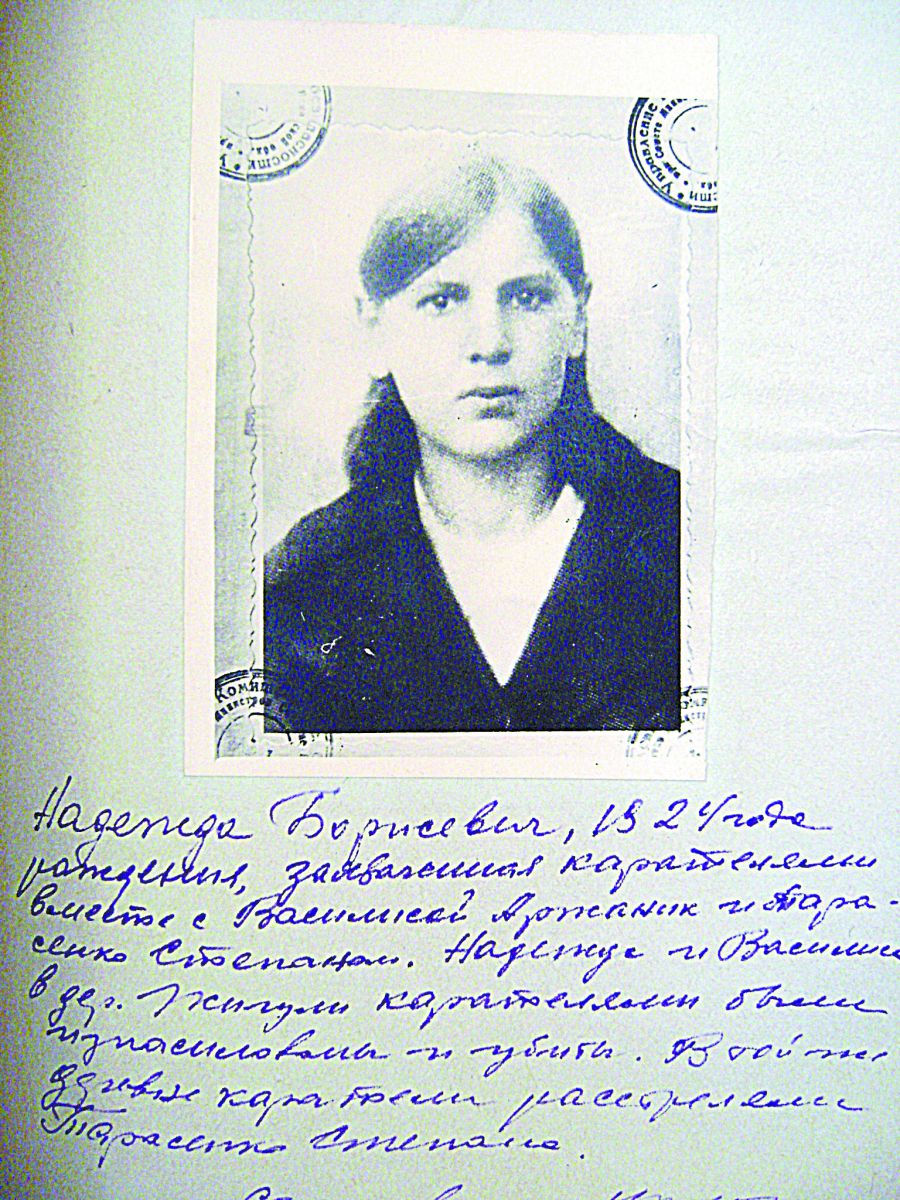 Управление
Комит
Министров
Надежда Борисевич, 1924 года
рождения, захваченная карателями
вместе с Василисой Аржаник и Тара-
сенко Степаном. Надежда и Василиса
в дер. Жигули карателями были
изнасилованы и убиты. В той же
деревне каратели расстреляли
Тарасенко Степана.